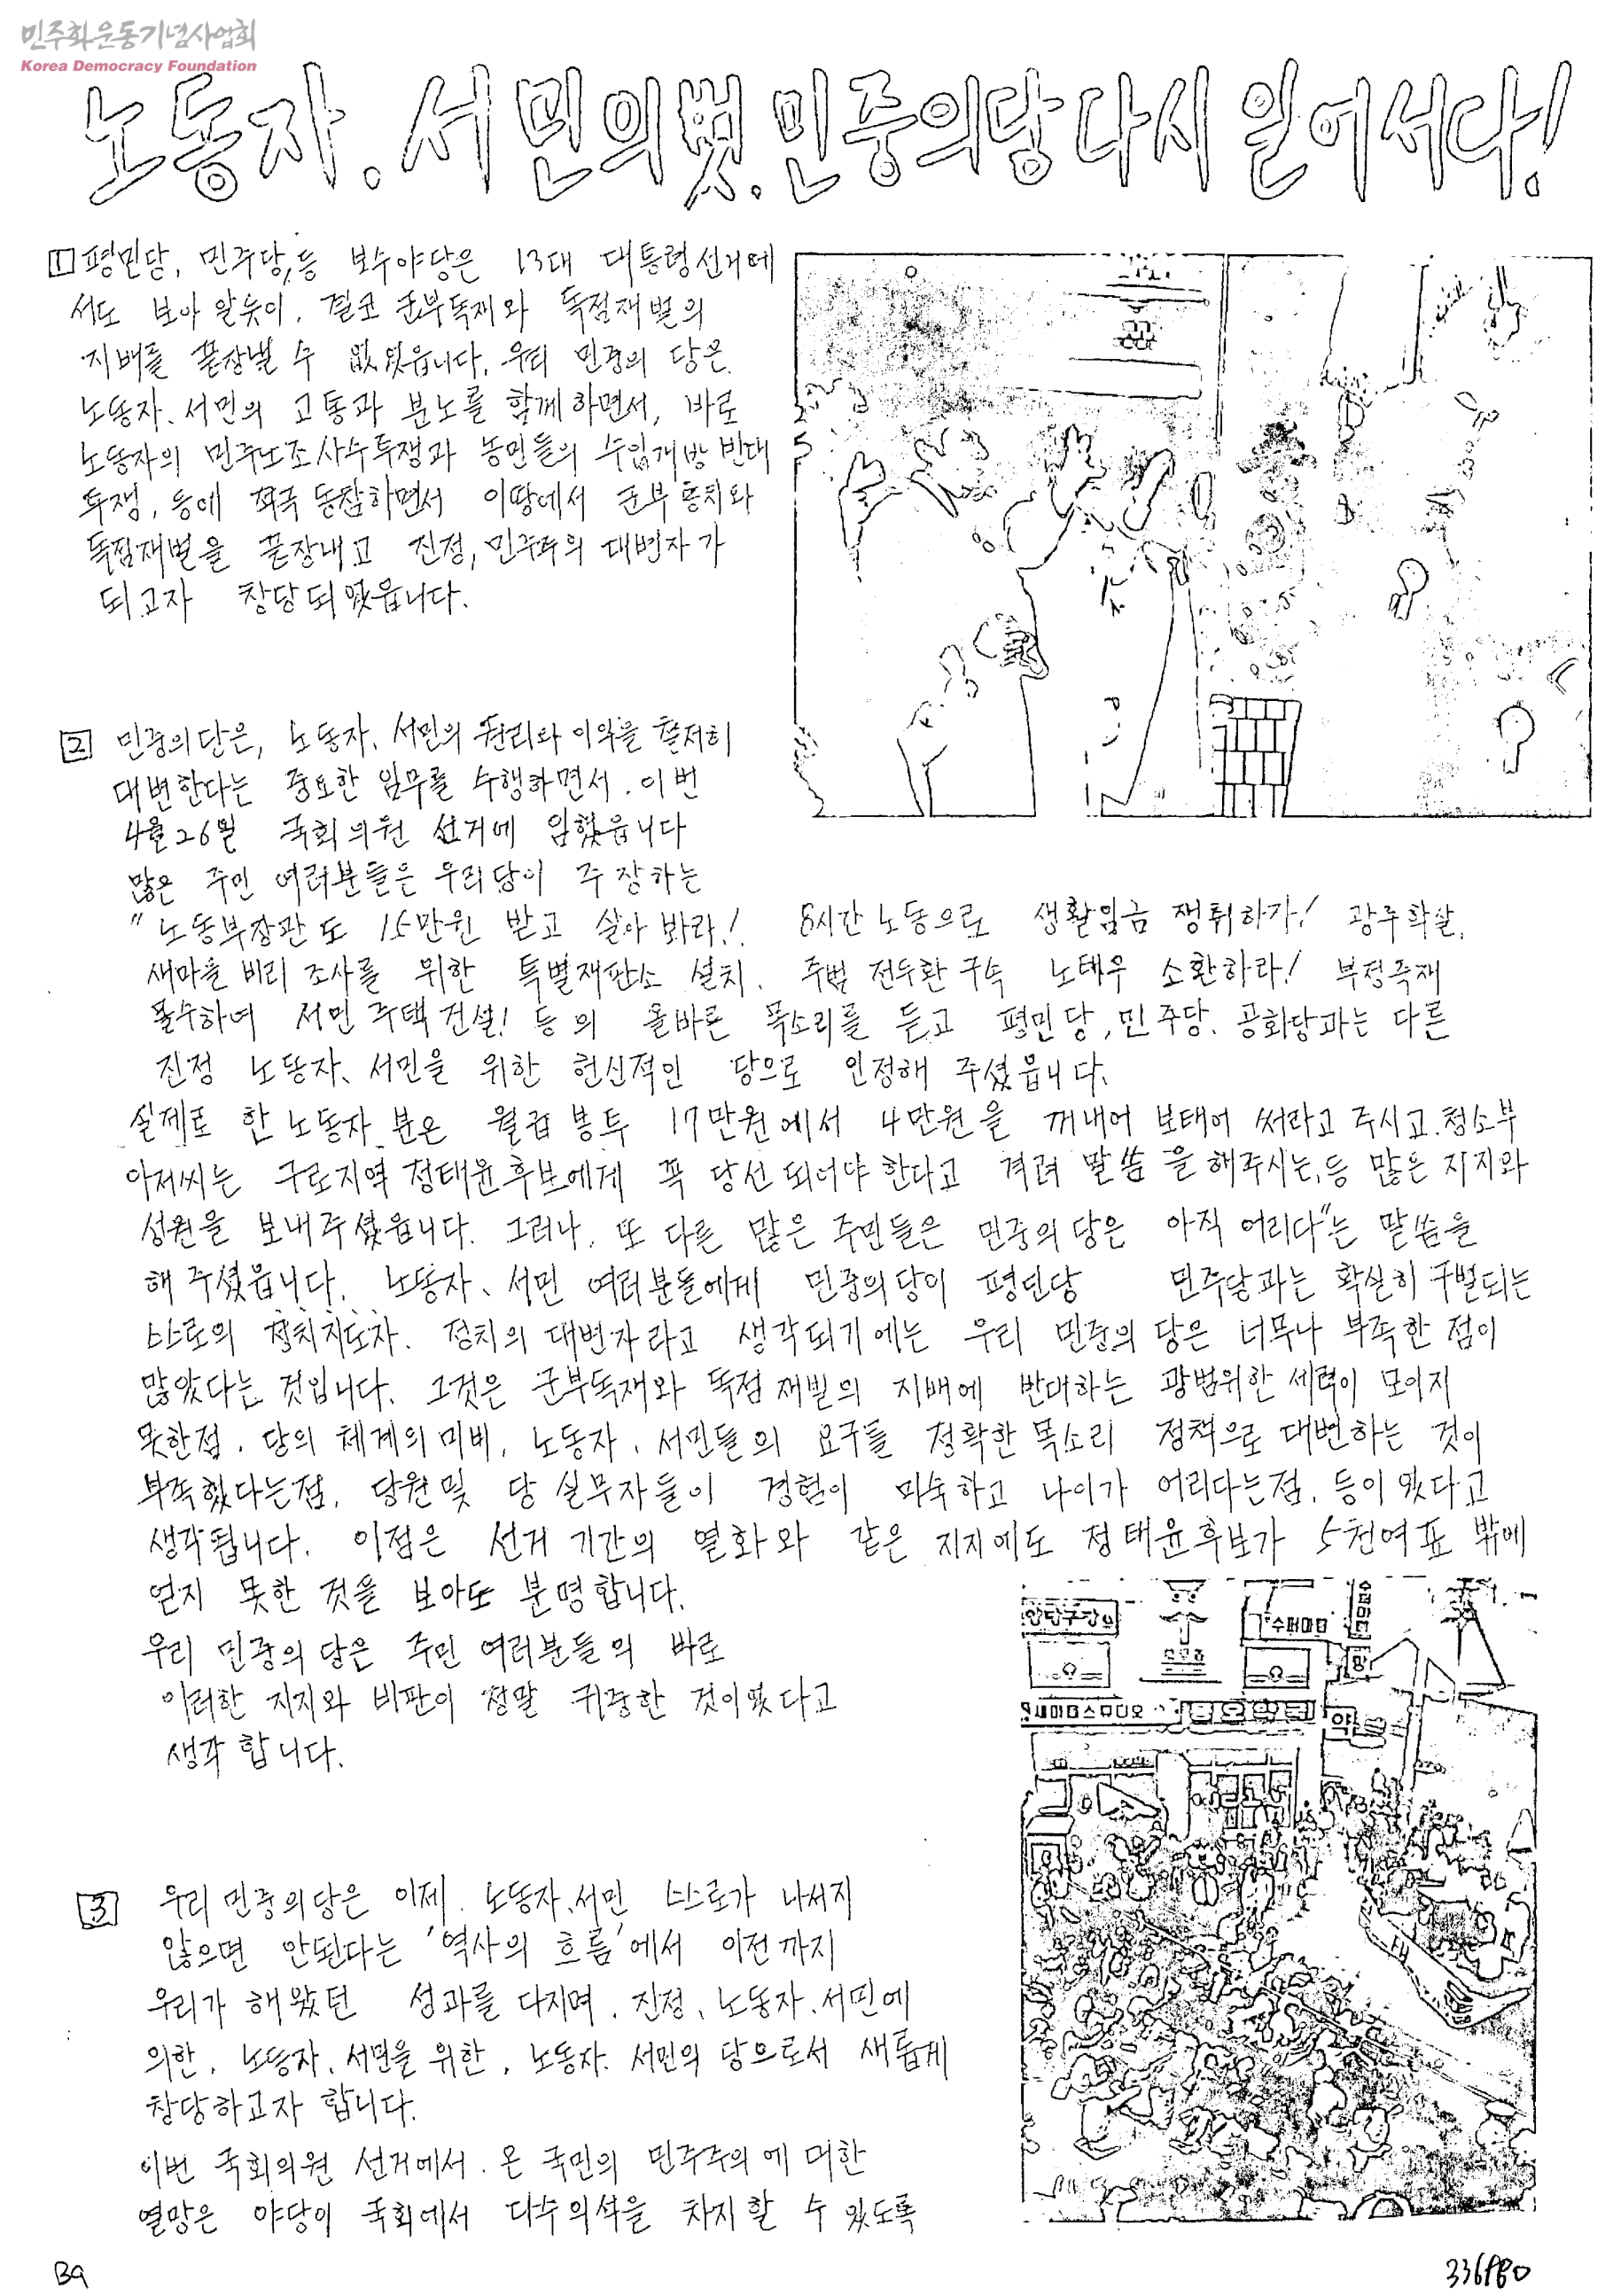 민주화운동기념사업회
Korea Democracy Foundation
노동자. 서민의 벗. 민중의당 다시 일어서다!
1 평민당, 민주당,등 보수야당은 13대 대통령선거에
서도 보아 알듯이, 결코 군부독재와 독점재벌의
지배를 끝장낼 수 없었읍니다. 우리 민중의 당은
노동자. 서민의 고통과 분노를 함께하면서, 바로
노동자의 민주노조사수투쟁과 농민들의 수입개방 반대
투쟁, 등에 적극 동참하면서 이땅에서 군부통치와
독점재벌을 끝장내고 진정, 민주의 대변자가
되고자 창당되었읍니다.
2 민중의당은, 노동자, 서민의 권리와 이익을 철저히
대변한다는 중요한 임무를 수행하면서. 이번
4월26일 국회의원 선거에 임했읍니다
많은 주민 여러분들은 우리당이 주장하는
"노동부장관도 15만원 받고 살아봐라! 8시간 노동으로 생활임금 쟁취하자! 광주학살,
새마을 비리 조사를 위한 특별재판소 설치. 주범 전두환 구속 노태우 소환하라! 부정축재
몰수하여 서민 주택건설! 등의 올바른 목소리를 듣고 평민당, 민주당. 공화당과는 다른
진정 노동자、서민을 위한 헌신적인 당으로 인정해 주셨읍니다.
실제로 한 노동자 분은 월급 봉투 17만원에서 4만원을 꺼내어 보태어 써라고 주시고. 청소부
아저씨는 구로지역 정태윤후보에게 꼭 당선 되어야 한다고 격려 말씀을 해주시는,등 많은 지지와
성원을 보내주셨읍니다. 그러나, 또 다른 많은 주민들은 민중의 당은 아직 어리다"는 말씀을
해 주셨읍니다. 노동자、서민 여러분들에게 민중의당이 평민당 민주당과는 확실히 구별되는
스스로의 정치지도자. 정치의 대변자라고 생각되기에는 우리 민중의 당은 너무나 부족한 점이
많았다는 것입니다. 그것은 군부독재와 독점재벌의 지배에 반대하는 광범위한 세력이 모이지
못한점. 당의 체계의 미비, 노동자. 서민들의 요구를 정확한 목소리 정책으로 대변하는 것이
부족했다는점, 당원및 당 실무자들이 경험이 미숙하고 나이가 어리다는점. 등이 있다고
생각됩니다. 이점은 선거 기간의 열화와 같은 지지에도 정태윤후보가 5천여표 밖에
얻지 못한 것을 보아도 분명합니다.
우리 민중의 당은 주민 여러분들의 바로
이러한 지지와 비판이 정말 귀중한 것이었다고
생각합니다.
당구장
수퍼마
새마 스튜디오
약
3 우리 민중의당은 이제. 노동자、서민 스스로가 나서지
않으면 안된다는 '역사의 흐름'에서 이전까지
우리가 해왔던 성과를 다지며. 진정、노동자.서민에
의한, 노동자, 서민을 위한, 노동자. 서민의 당으로서 새롭게
창당하고자 합니다.
이번 국회의원 선거에서. 온 국민의 민주주의에 대한
열망은 야당이 국회에서 다수의석을 차지할 수 있도록
B9
336980